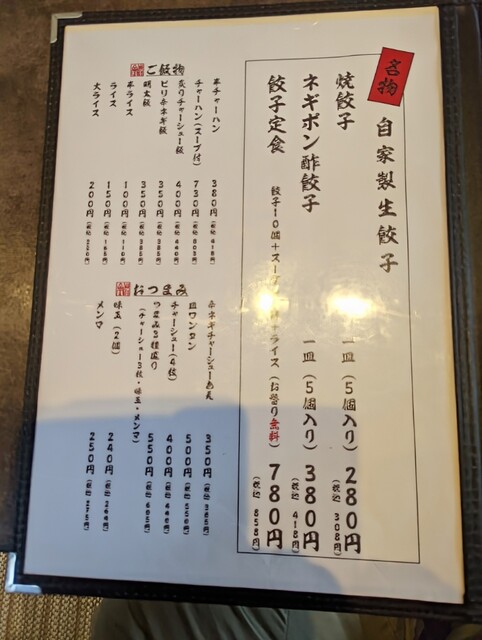 名物
自家製生餃子
焼餃子 一皿(5個入り) 280円(税込308円)
ネギポン酢餃子 一皿(5個入り) 380円(税込418円)
餃子定食 餃子10個+スープ ライス(お替り無料) 780円(税込858円)
ご飯物
半チャーハン 380円(税込418円)
チャーハン(スープ付) 730円(税込803円)
炙りチャーシュー飯 400円(税込440円)
ピリ辛ネギ飯 350円(税込385円)
明太飯 350円(税込385円)
半ライス 100円(税込110円)
ライス 150円(税込165円)
大ライス 200円(税込220円)
おつまみ
辛ネギチャーシューあえ 350円(税込385円)
塩ワンタン 500円(税込550円)
チャーシュー(4枚) 400円(税込440円)
つまみ3種盛り 550円(税込605円)
(チャーシュー3枚・味玉・メンマ)
味玉(2個) 240円(税込264円)
メンマ 250円(税込275円)